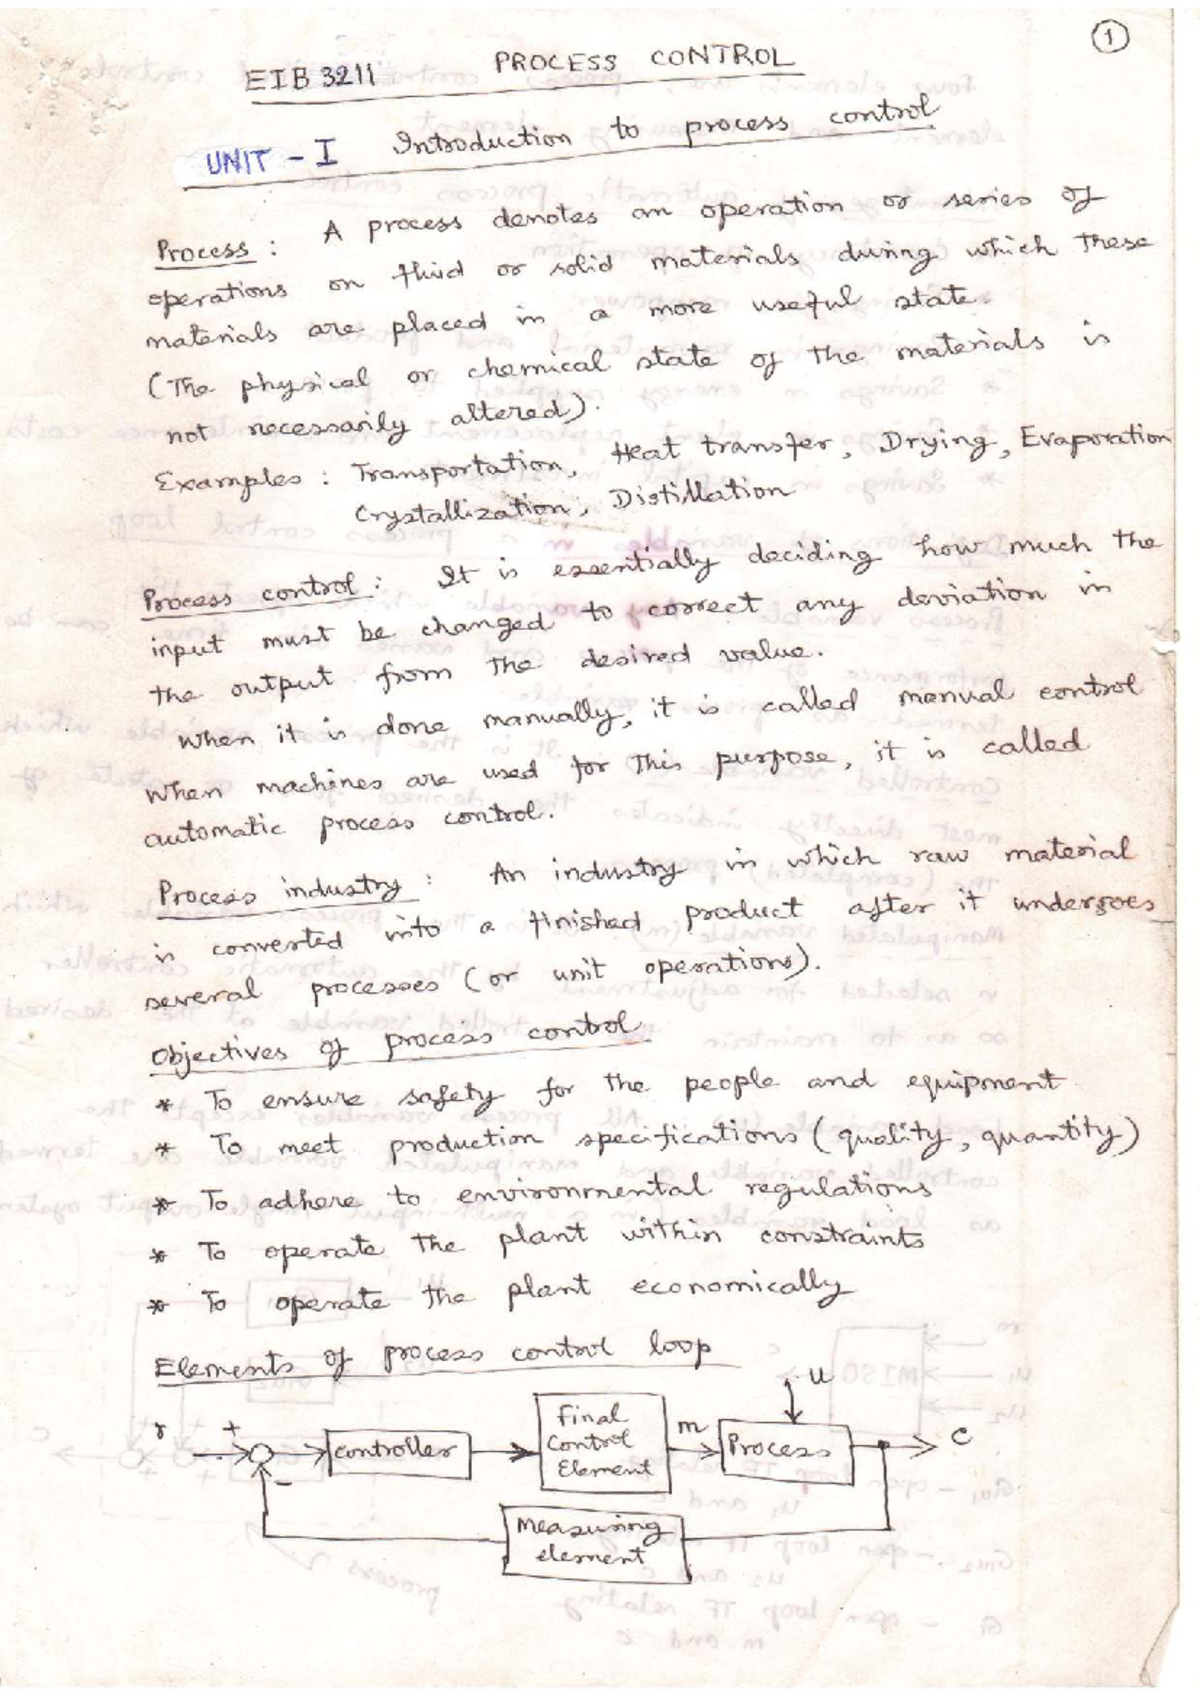 1
EIB 3211 PROCESS CONTROL
UNIT - I Introduction to process control
Process : A process denotes an operation or series of
operations on fluid or solid materials during which these
materials are placed in a more useful state.
(The physical or chemical state of the materials is
not necessarily altered).
Examples : Transportation, Heat transfer, Drying, Evaporation
Crystallization, Distillation
Process control : It is essentially deciding how much the
input must be changed to correct any deviation in
the output from the desired value.
When it is done manually, it is called manual control
When machines are used for this purpose, it is called
automatic process control.
Process industry : An industry in which raw material
is converted into a finished product after it undergoes
several processes (or unit operations).
Objectives of process control
* To ensure safety for the people and equipment
* To meet production specifications (quality, quantity)
* To adhere to environmental regulations
* To operate the plant within constraints
* To operate the plant economically
Elements of process control loop
u
r + - controller Final Control Element m Process c
Measuring element